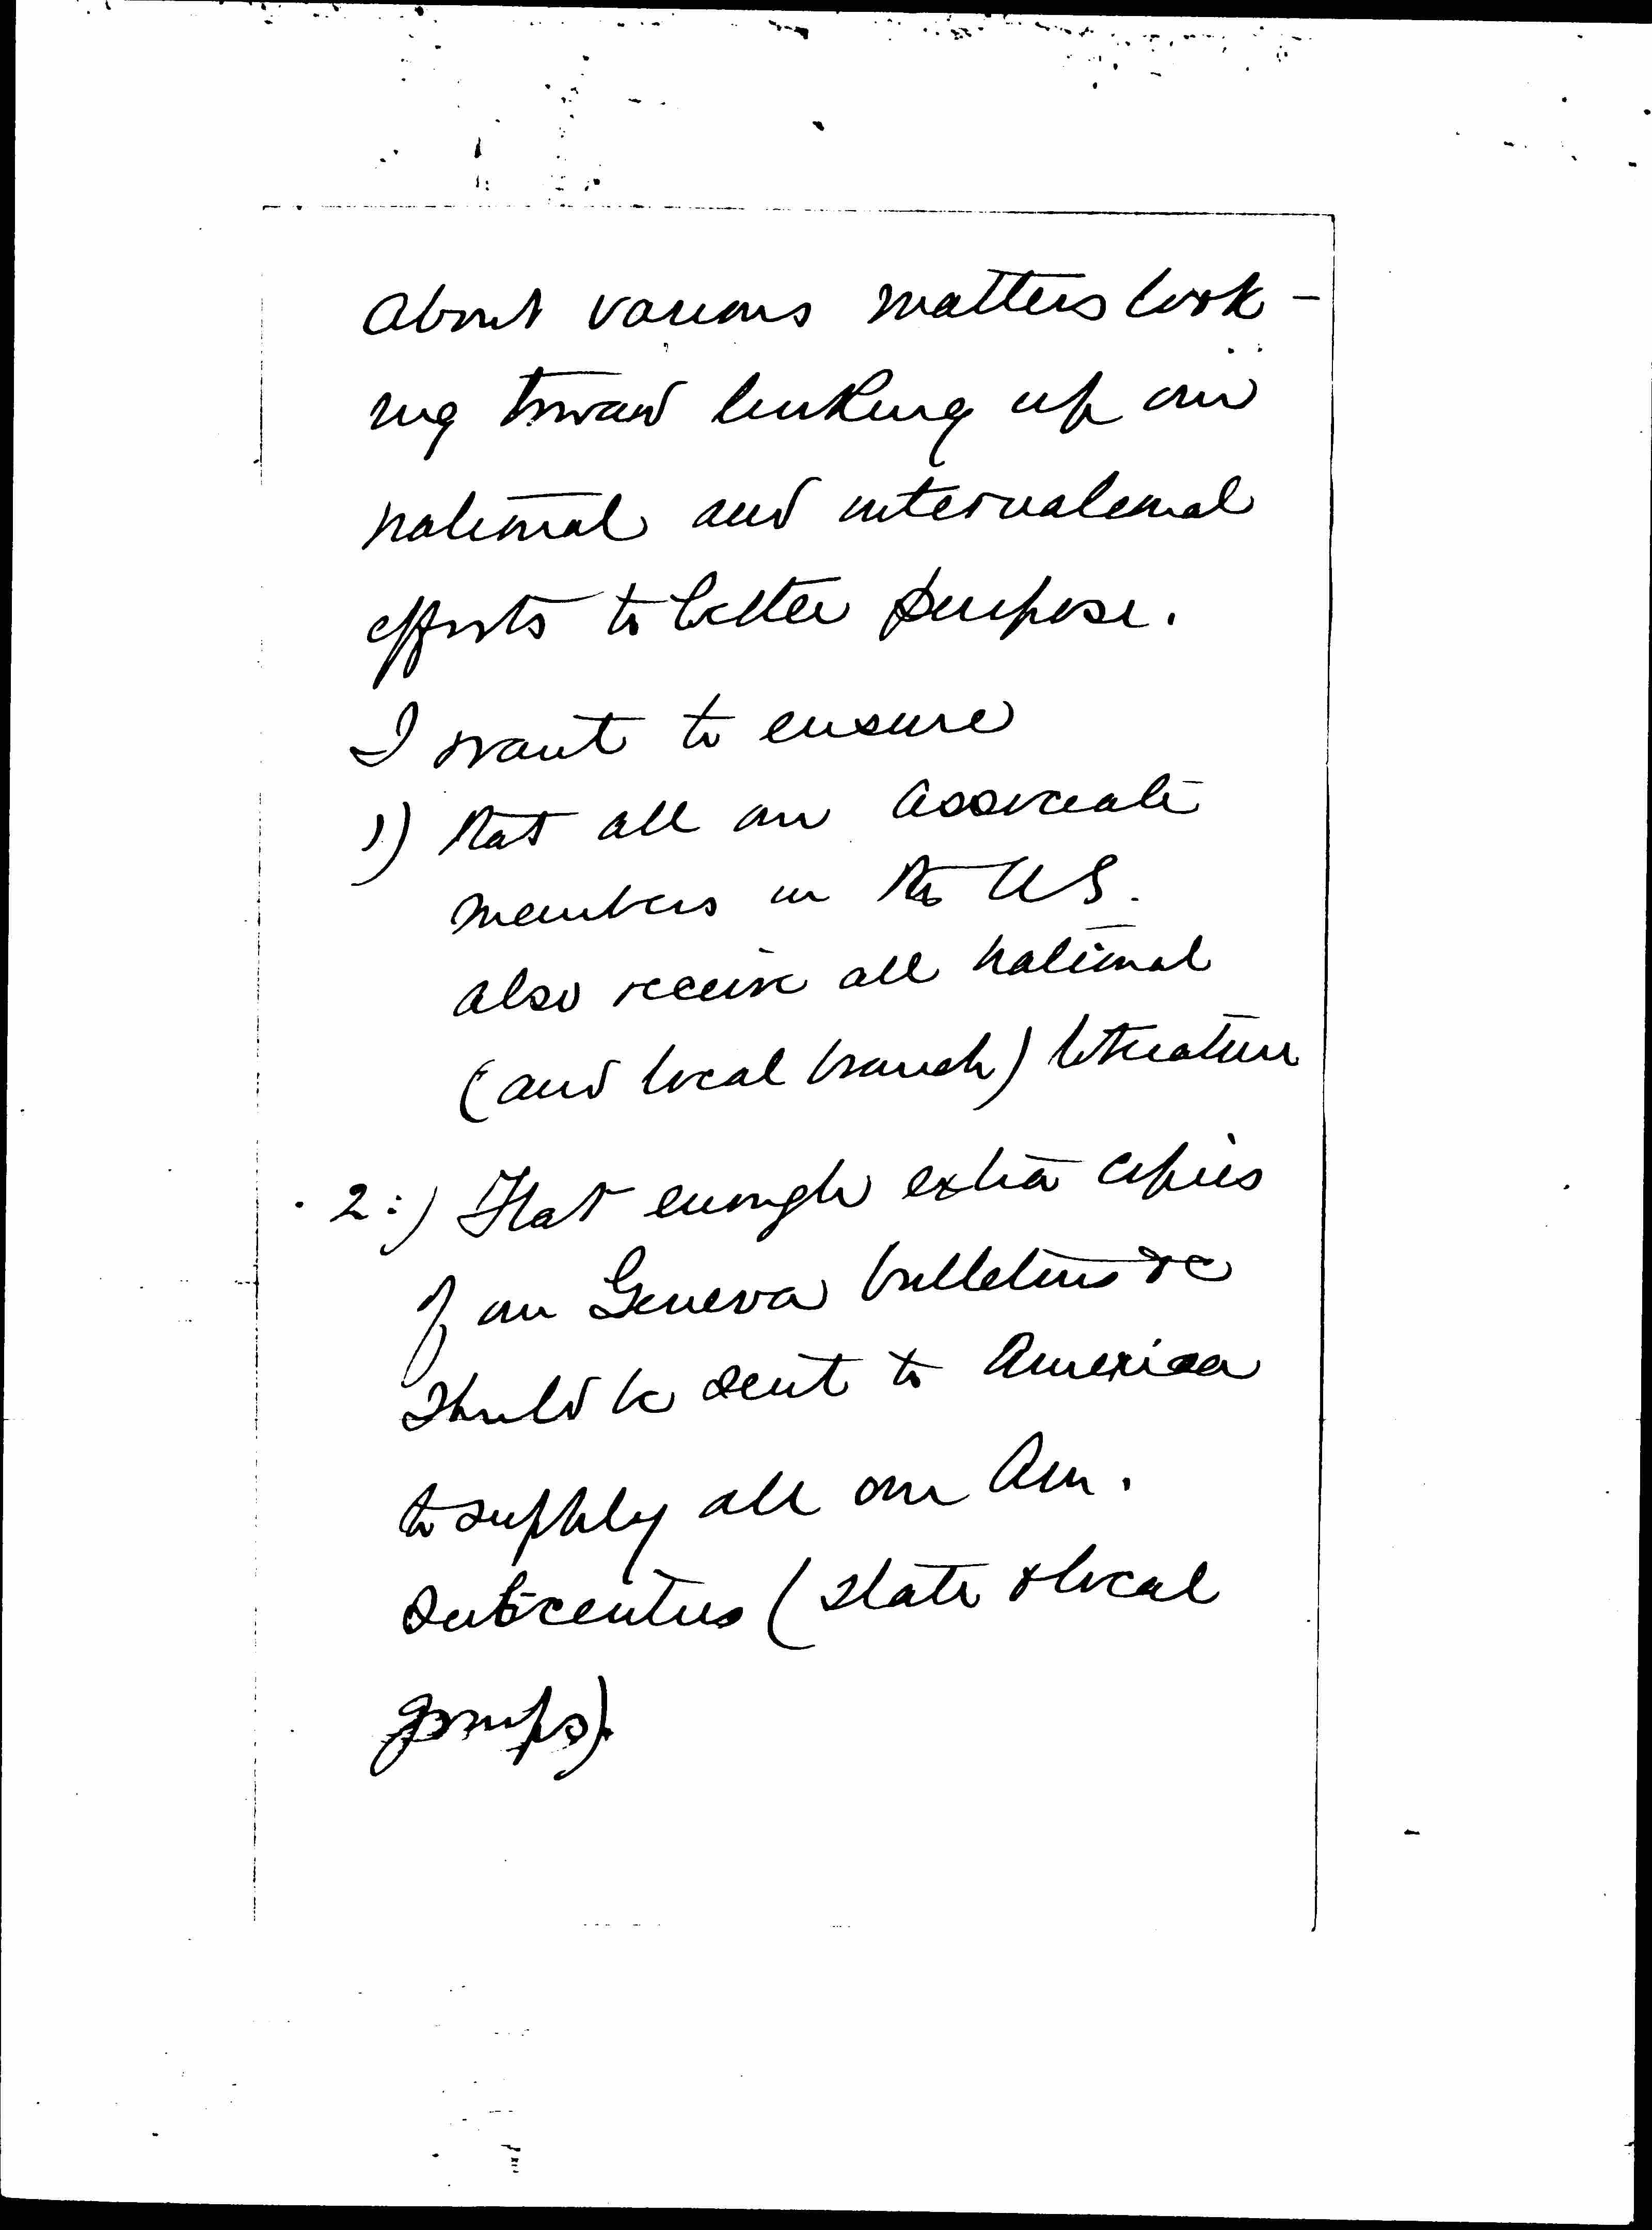 about various matters look-
ing toward linking up our
national and international
efforts to better purpose.
I want to ensure
1) that all our associate
members in the US.
also receive all national
(and local branch) literature
2:) That enough extra copies
of our Geneva bulletins &c
should be sent to America
to supply all our Am.
sub-centres (state & local
groups).